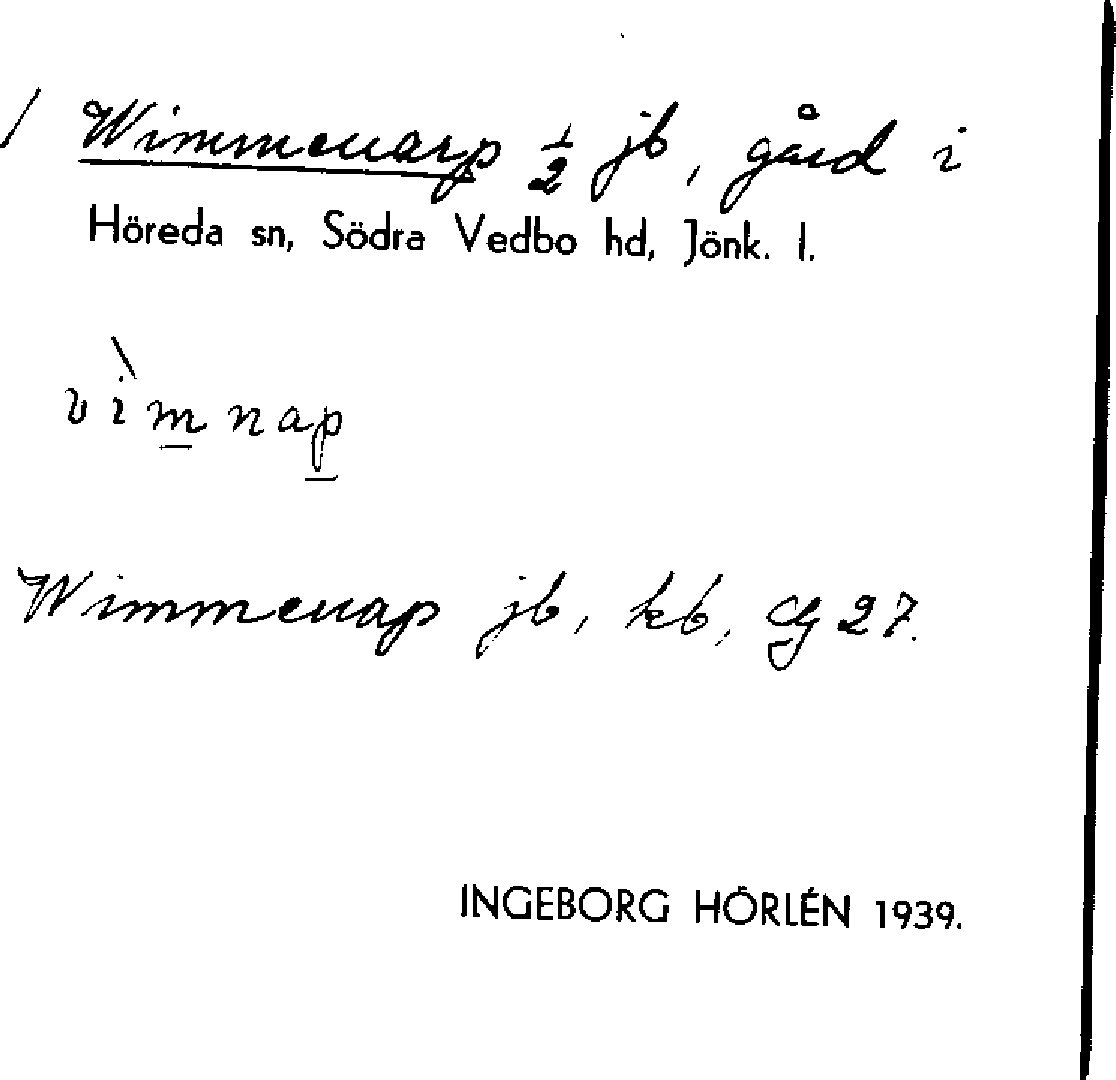 / Wimmenarp ½ jb, gård i
Höreda sn, Södra Vedbo hd, Jönk. l.
vìmnap
Wimmenap jb, kb, Cg 27.
INGEBORG HÖRLÉN 1939.